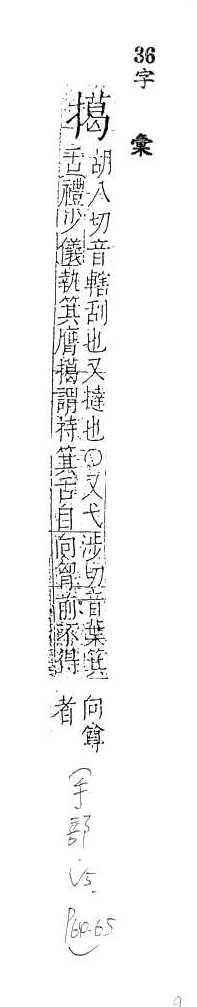 36
字彙
擖
胡八切音轄刮也又撻也○又弋涉切音葉箕
舌禮少儀執箕膺擖謂持箕舌自向胷前不得
向尊
者
(手部.V5.
P64.65)
9